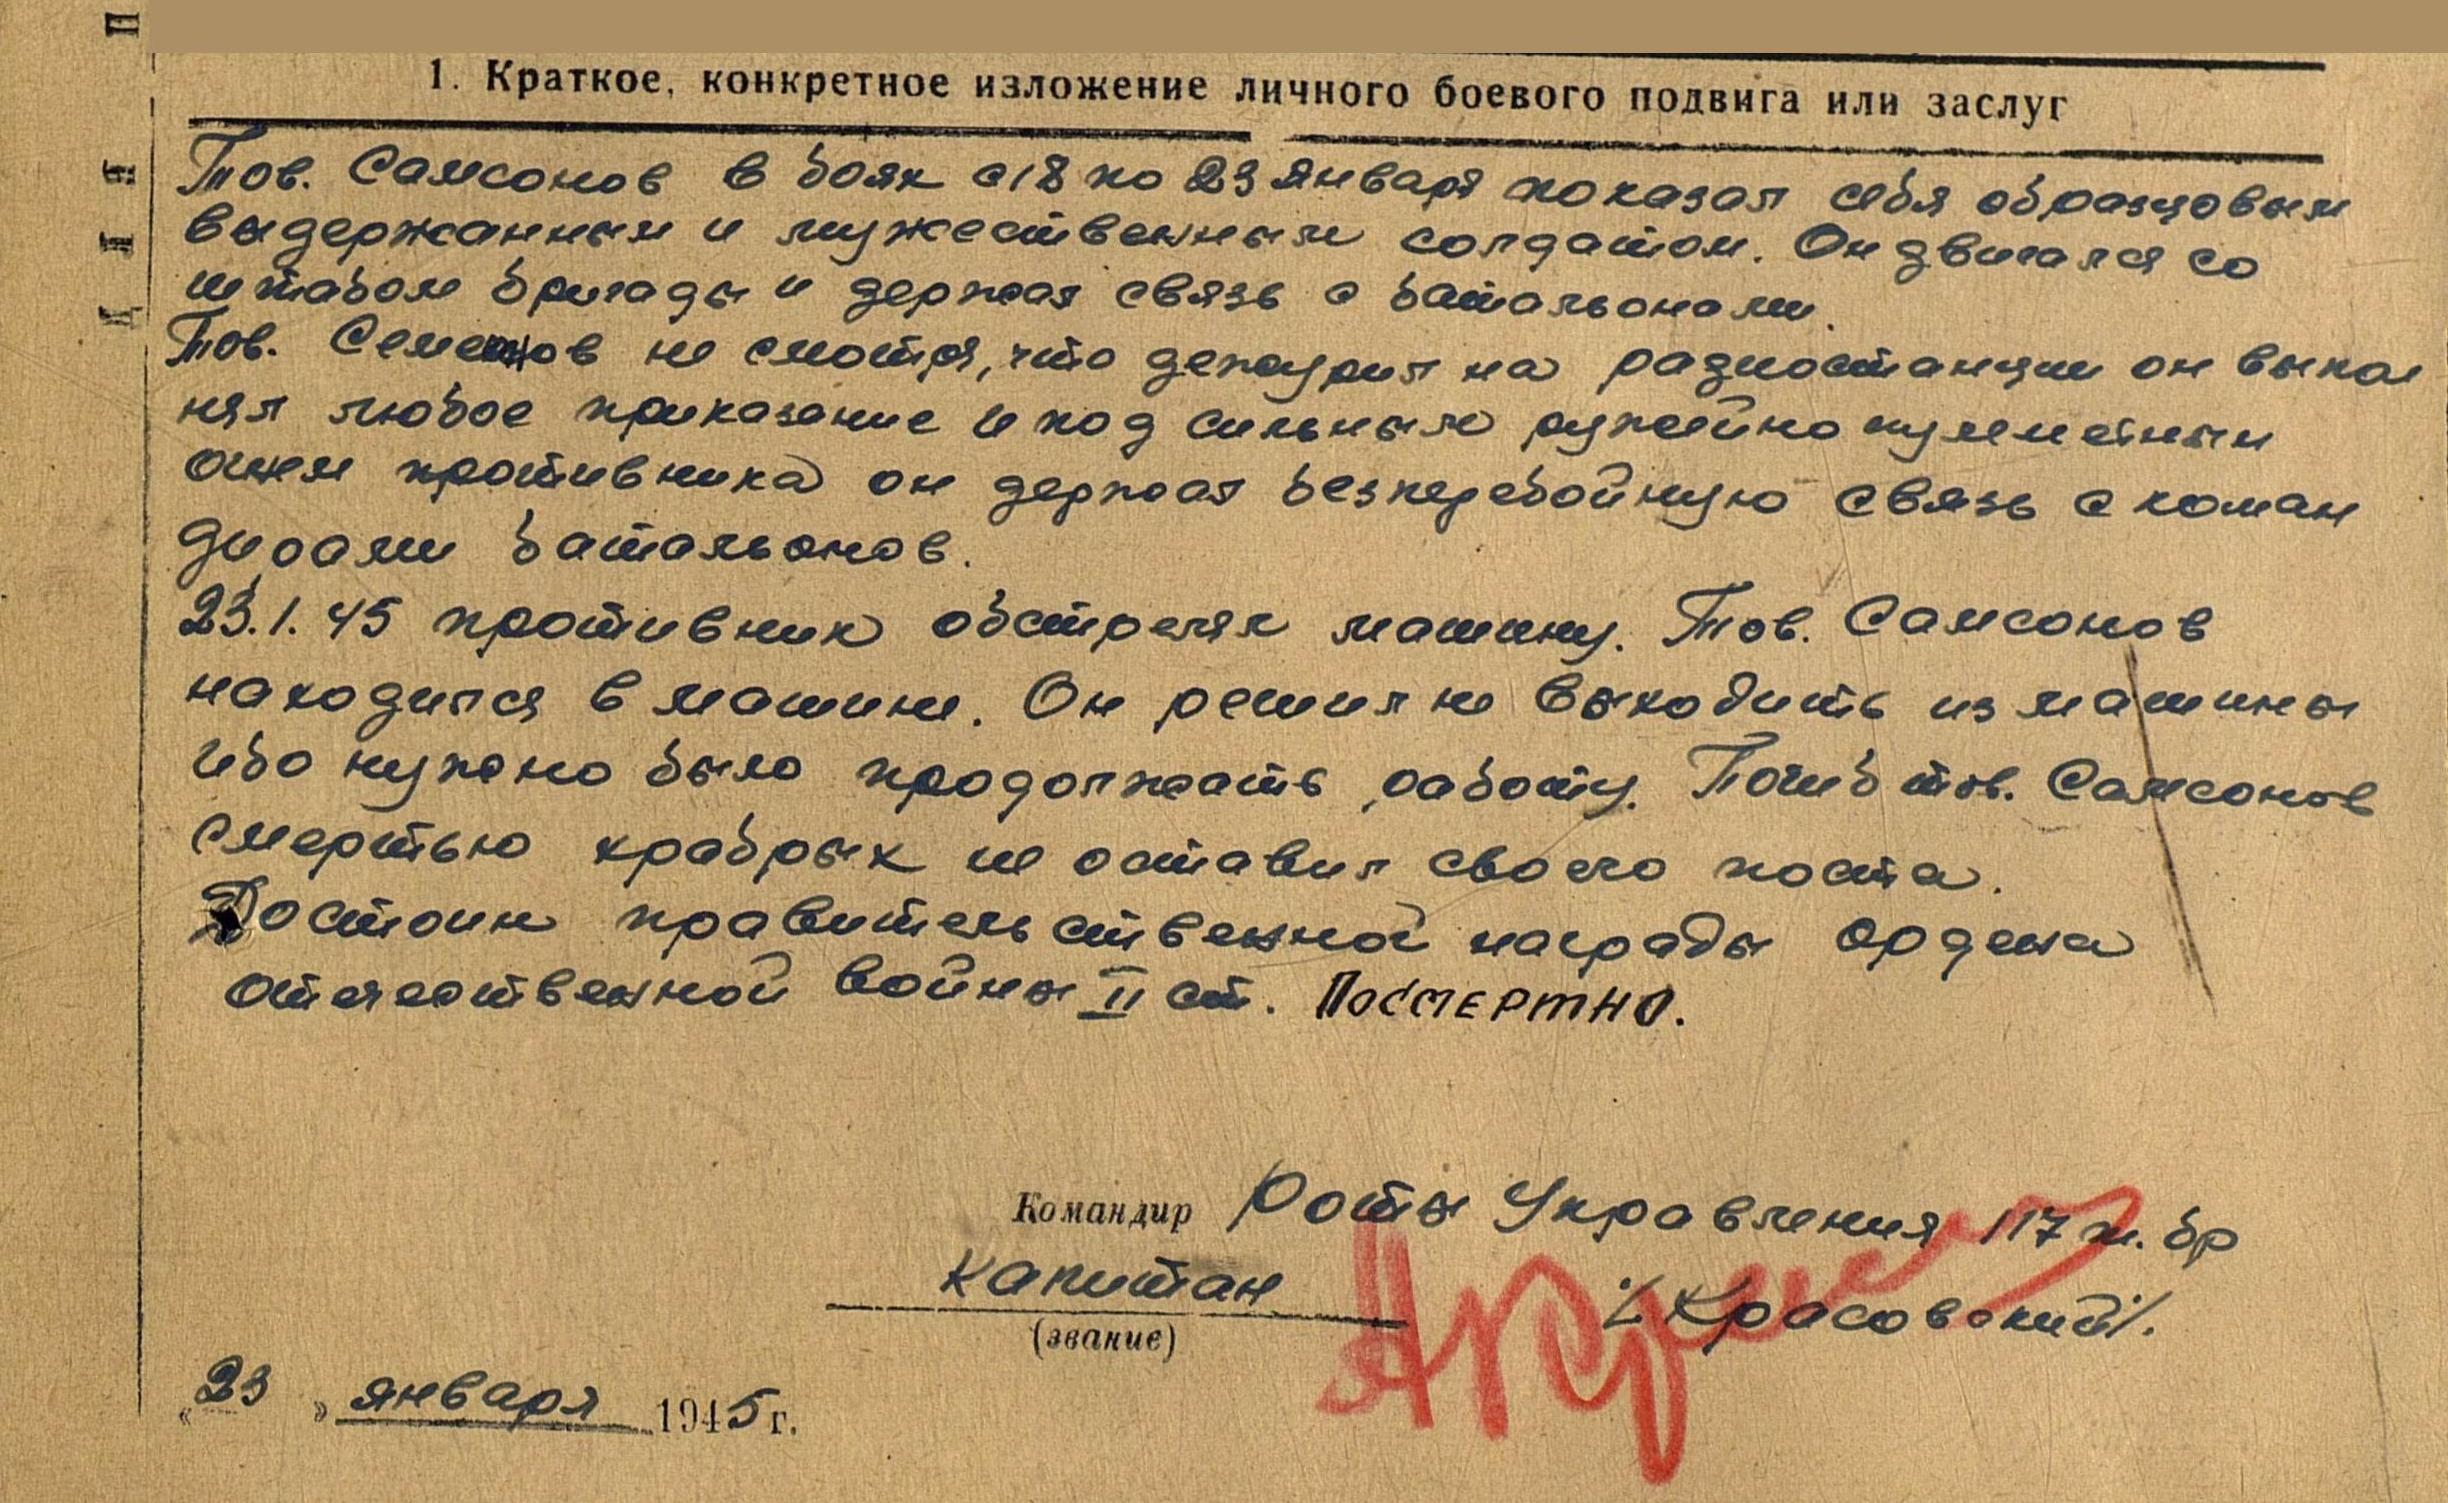 1. Краткое, конкретное изложение личного боевого подвига или заслуг
Тов. Самсонов в боях с 18 по 23 января показал себя образцовым
выдержанным и мужественным солдатом. Он двигался со
штабом бригады и держал связь с батальонами.
Тов. Семенов не смотря, что дежурил на радиостанции он выпол
нял любое приказание и под сильным ружейно пулеметным
огнем противника он держал безперебойную связь с коман
дирами батальонов.
23.1.45 противник обстрелял машину. Тов. Самсонов
находился в машине. Он решил не выходить из машины
ибо нужно было продолжать работу. Погиб тов. Самсонов
смертью храбрых не оставил своего поста.
Достоин правительственной награды ордена
отечественной войны II ст. Посмертно.
Командир Роты Управления 117 т. бр
Капитан /Красовский/.
(звание)
"23" января 1945 г.